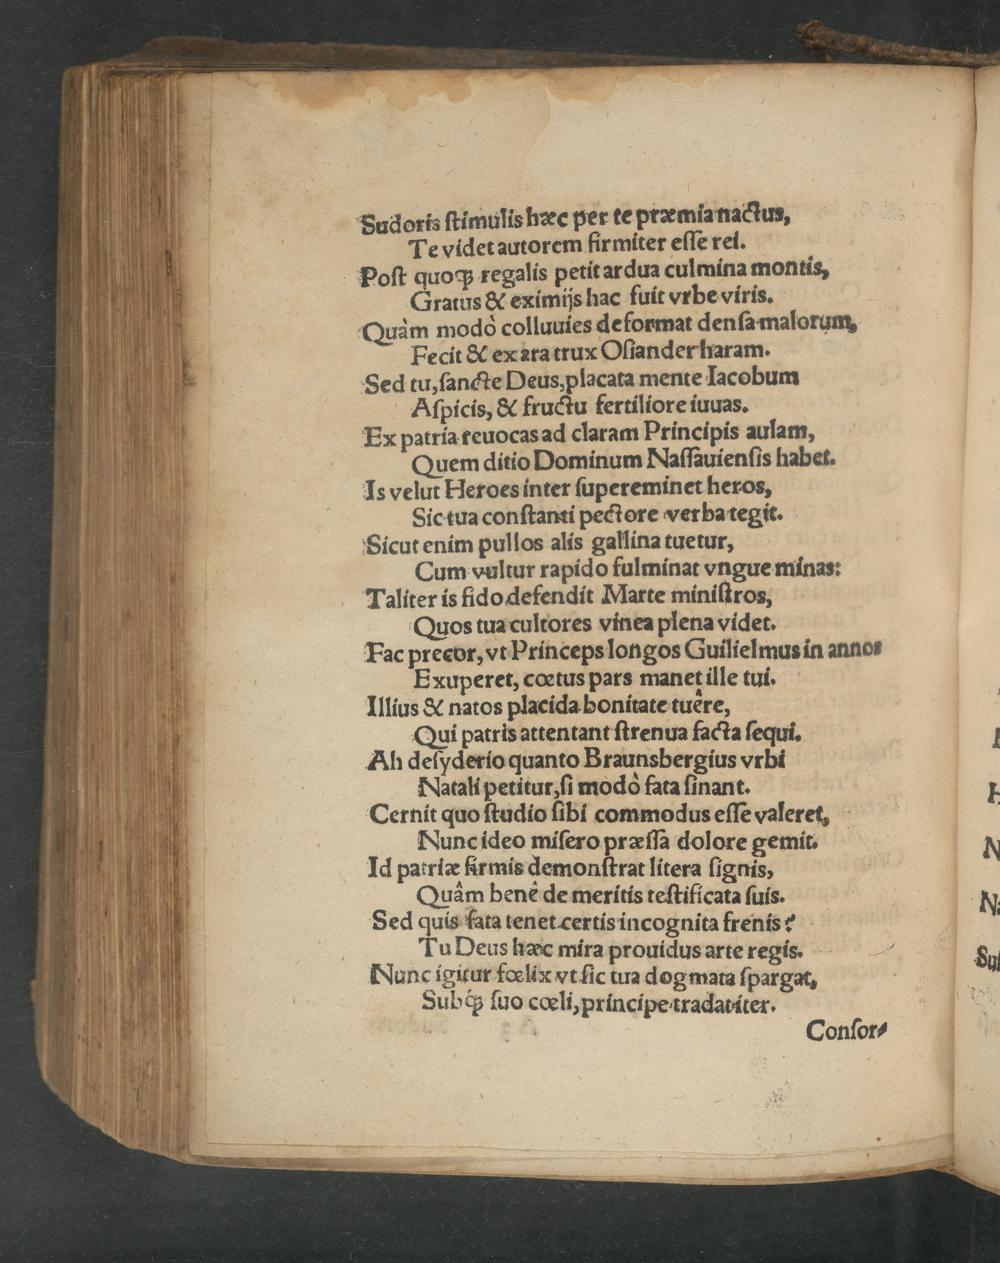 Sudoris ſtimulis hæc per te præmia nactus,
Te videt autorem firmiter eſſe rei.
Poſt quoꝙ regalis petit ardua culmina montis,
Gratus & eximijs hac fuit vrbe viris.
Quàm modò colluuies deformat denſa malorum,
Fecit & ex ara trux Oſiander haram.
Sed tu, ſancte Deus, placata mente Iacobum
Aſpicis, & fructu fertiliore iuuas.
Ex patria reuocas ad claram Principis aulam,
Quem ditio Dominum Naſſauienſis habet.
Is velut Heroes inter ſupereminet heros,
Sic tua conſtanti pectore verba tegit.
Sicut enim pullos alis gallina tuetur,
Cum vultur rapido fulminat vngue minas:
Taliter is fido defendit Marte miniſtros,
Quos tua cultores vinea plena videt.
Fac precor, vt Princeps longos Guilielmus in annos
Exuperet, cœtus pars manet ille tui.
Illius & natos placida bonitate tuêre,
Qui patris attentant ſtrenua facta ſequi.
Ah deſyderio quanto Braunsbergius vrbi
Natali petitur, ſi modò fata ſinant.
Cernit quo ſtudio ſibi commodus eſſe valeret,
Nunc ideo miſero præſſa dolore gemit.
Id patriæ firmis demonſtrat litera ſignis,
Quâm benê de meritis teſtificata ſuis.
Sed quis fata tenet certis incognita frenis?
Tu Deus hæc mira prouidus arte regis.
Nunc igitur fœlix vt ſic tua dogmata ſpargat,
Subꝙ́ ſuo cœli, principe tradat iter.
Conſor⸗